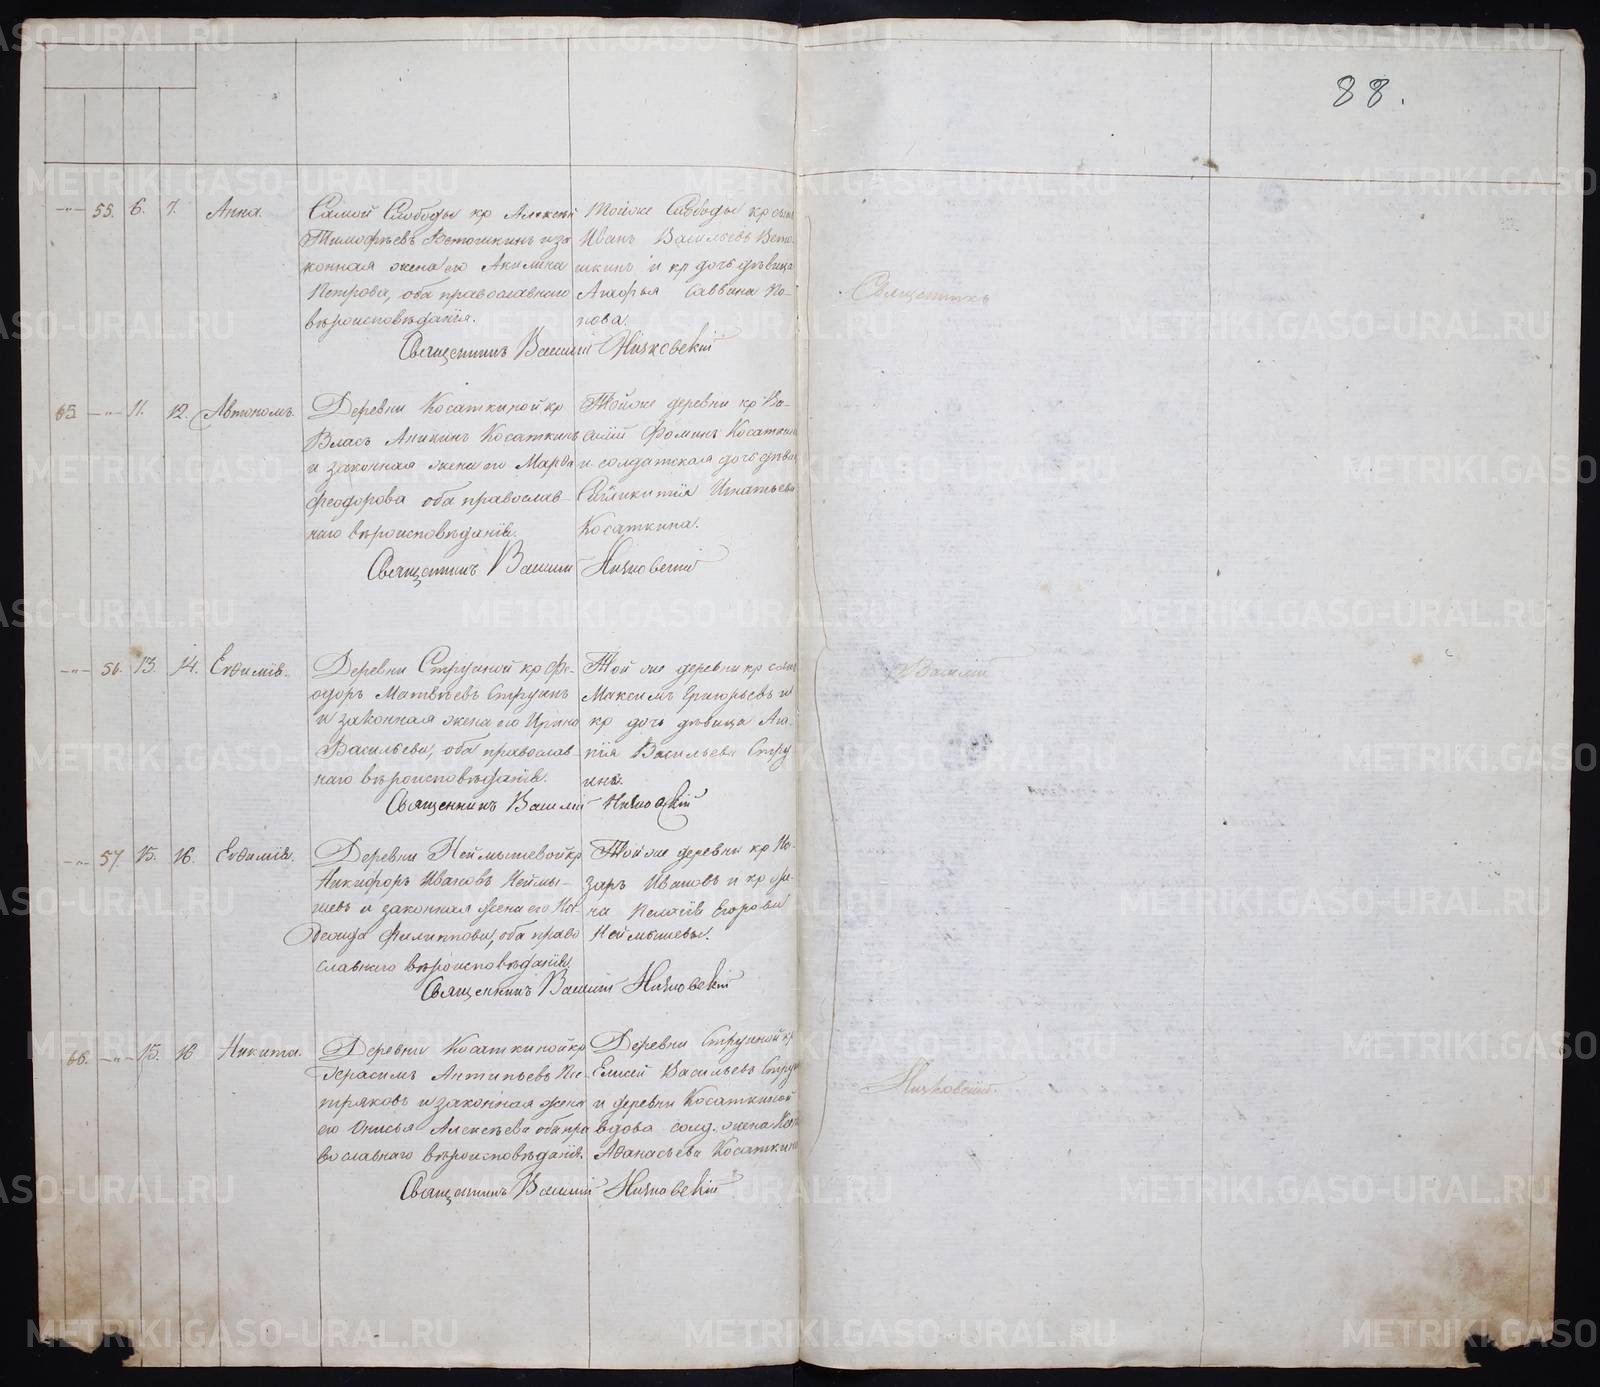 88.
-"- 55. 6. 7. Анна.
Самой Слободы кр Алексѣй
Тимофѣевъ Ветошкинъ и за
конная жена его Акилина
Петрова, оба православнаго
вѣроисповѣданія.
Тойже Слободы кр сынъ
Иванъ Васильевъ Вето-
шкинъ и кр дочь дѣвица
Агафья Саввина По-
пова.
Священникъ Василій Нияковскій
65 -"- 11. 12. Автономъ.
Деревни Косаткиной кр
Власъ Аникинъ Косаткинъ
и законная жена его Марѳа
Феодорова оба православ-
наго вѣроисповѣданія.
Тойже деревни кр Ва-
силій Фоминъ Косаткинъ
и солдатская дочь дѣвица
Игнатьева
Косаткина.
Священникъ Василій
-"- 56. 13. 14. Евѳимія.
Деревни Струиной кр Фе-
одоръ Матвѣевъ Струинъ
и законная жена его Ирина
Васильева, оба православ-
наго вѣроисповѣданія.
Той же деревни кр сынъ
Максимъ Григорьевъ и
кр дочь дѣвица Ага-
пія Васильева Стру
ины.
Священникъ Василій
-"- 57. 15. 16. Евѳимія.
Деревни Неймышевой кр
Никифоръ Ивановъ Неймы-
шевъ и законная жена его
Филиппова, оба право
славнаго вѣроисповѣданія
Той же деревни кр На-
заръ Ивановъ и кр же-
на Пелагія Егорова
Неймышевы.
Священникъ Василій
66. -"- 15. 16 Никита.
Деревни Косаткиной кр
Герасимъ Антипьевъ Пе-
тряковъ и законная жена
его Онисья Алексѣева оба пра
вославнаго вѣроисповѣданія.
Деревни Струиной кр
Елисей Васильевъ Струи
и деревни Косаткиной
вдова солд. жена
Аѳанасьева Косаткина
Священникъ Василій
Священникъ
Василій
METRIKI.GASO-URAL.RU